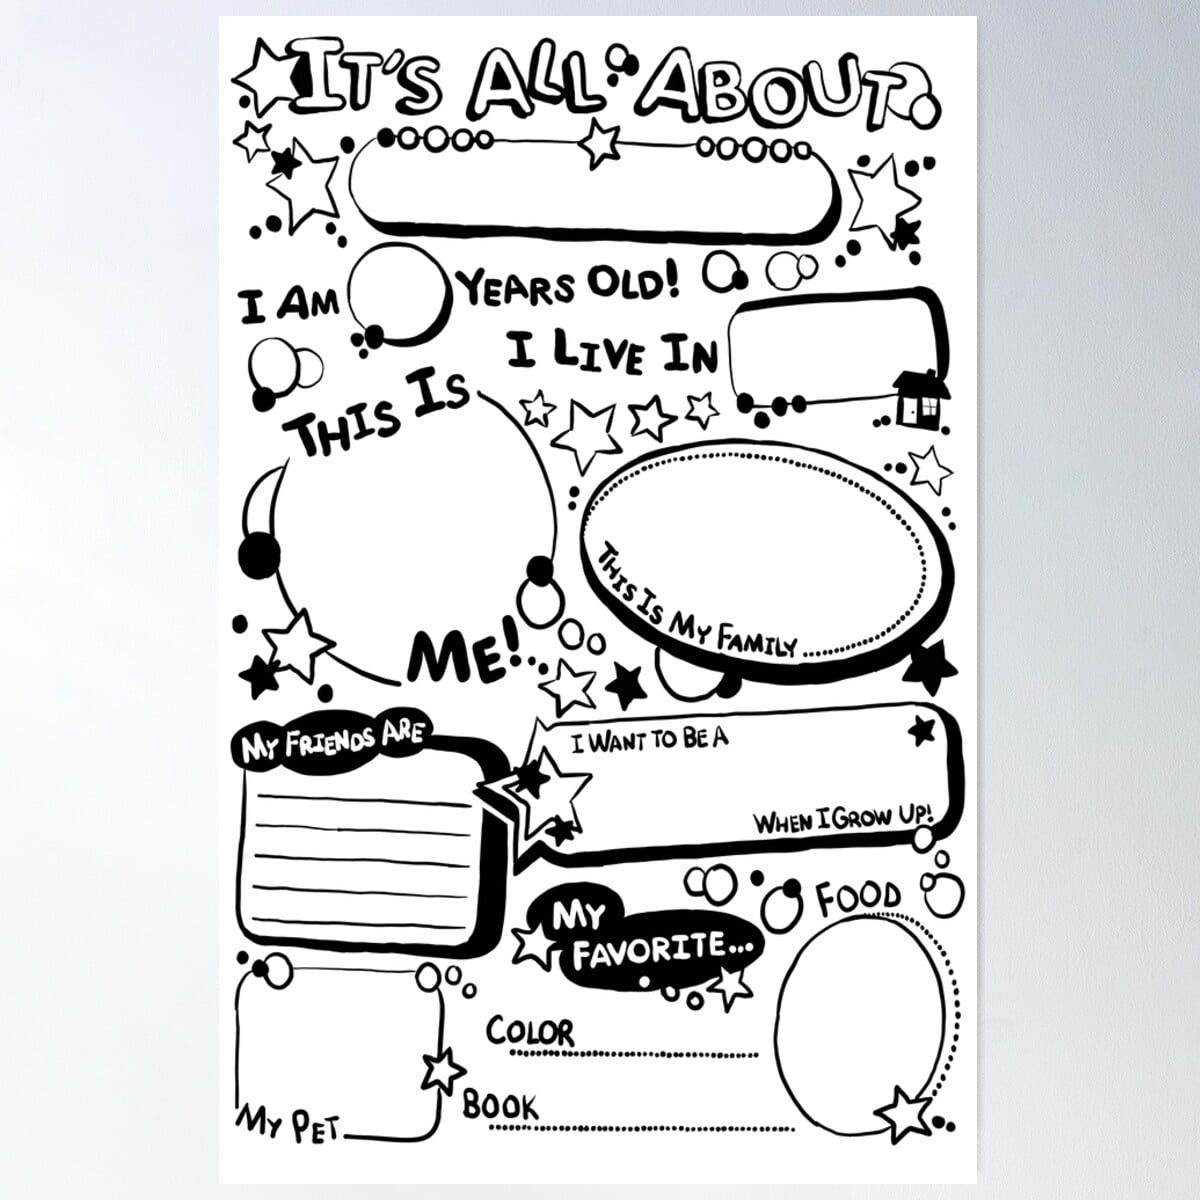 IT'S ALL ABOUT
I AM YEARS OLD!
I LIVE IN
THIS IS
ME!
THIS IS MY FAMILY
MY FRIENDS ARE
I WANT TO BE A
WHEN I GROW UP!
MY
FAVORITE...
FOOD
COLOR
BOOK
MY PET